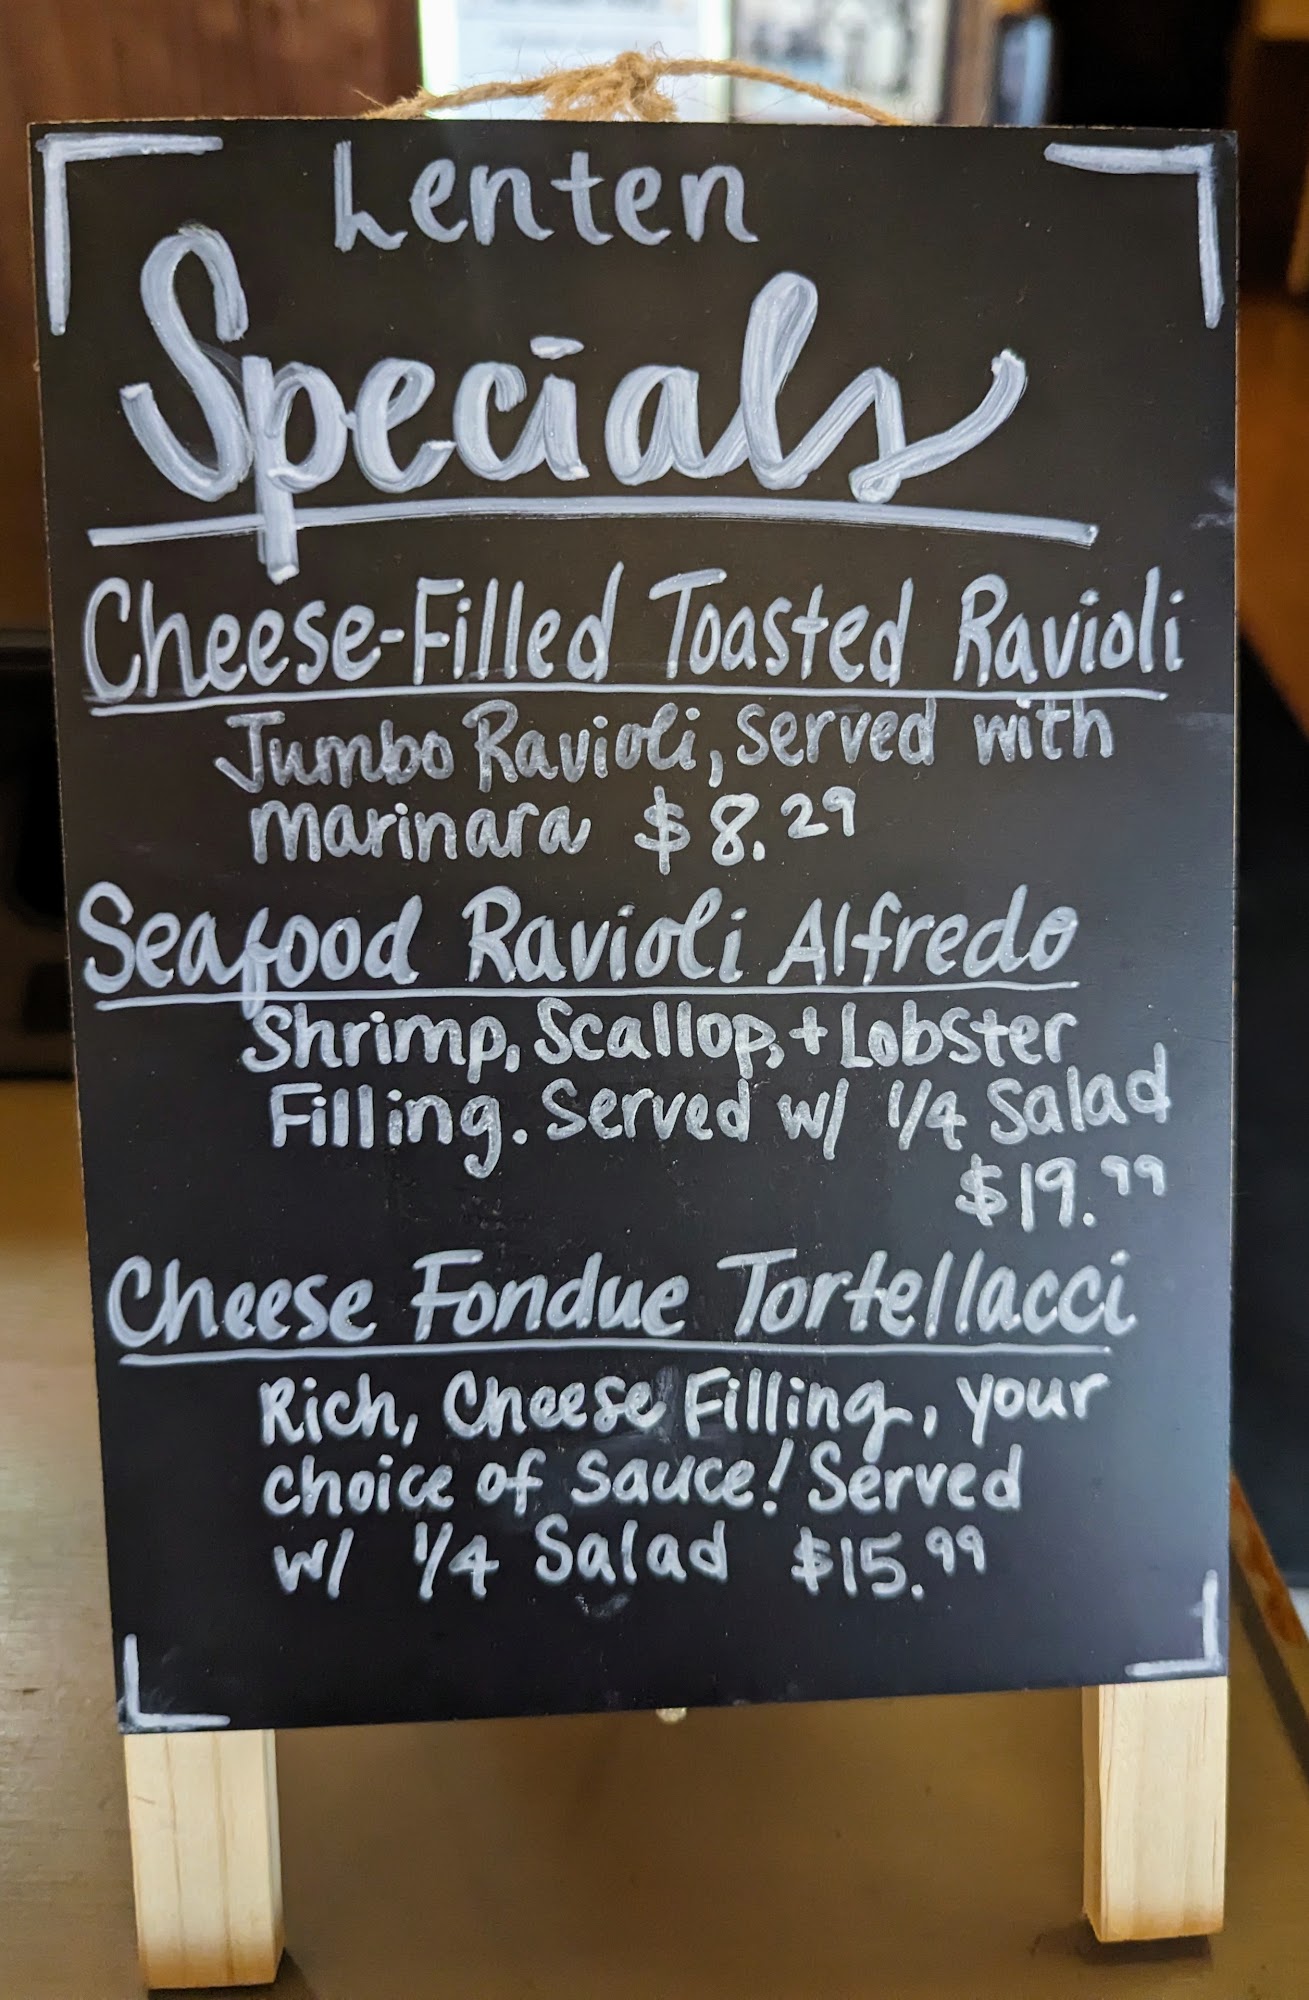 Lenten
Specials
Cheese-Filled Toasted Ravioli
Jumbo Ravioli, served with
marinara $8.29
Seafood Ravioli Alfredo
Shrimp, Scallop, + Lobster
Filling. Served w/ 1/4 Salad
$19.99
Cheese Fondue Tortellacci
Rich, Cheese Filling, your
choice of sauce! Served
w/ 1/4 Salad $15.99